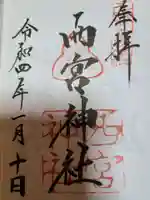 奉拝
雨宮神社
令和四年一月十日